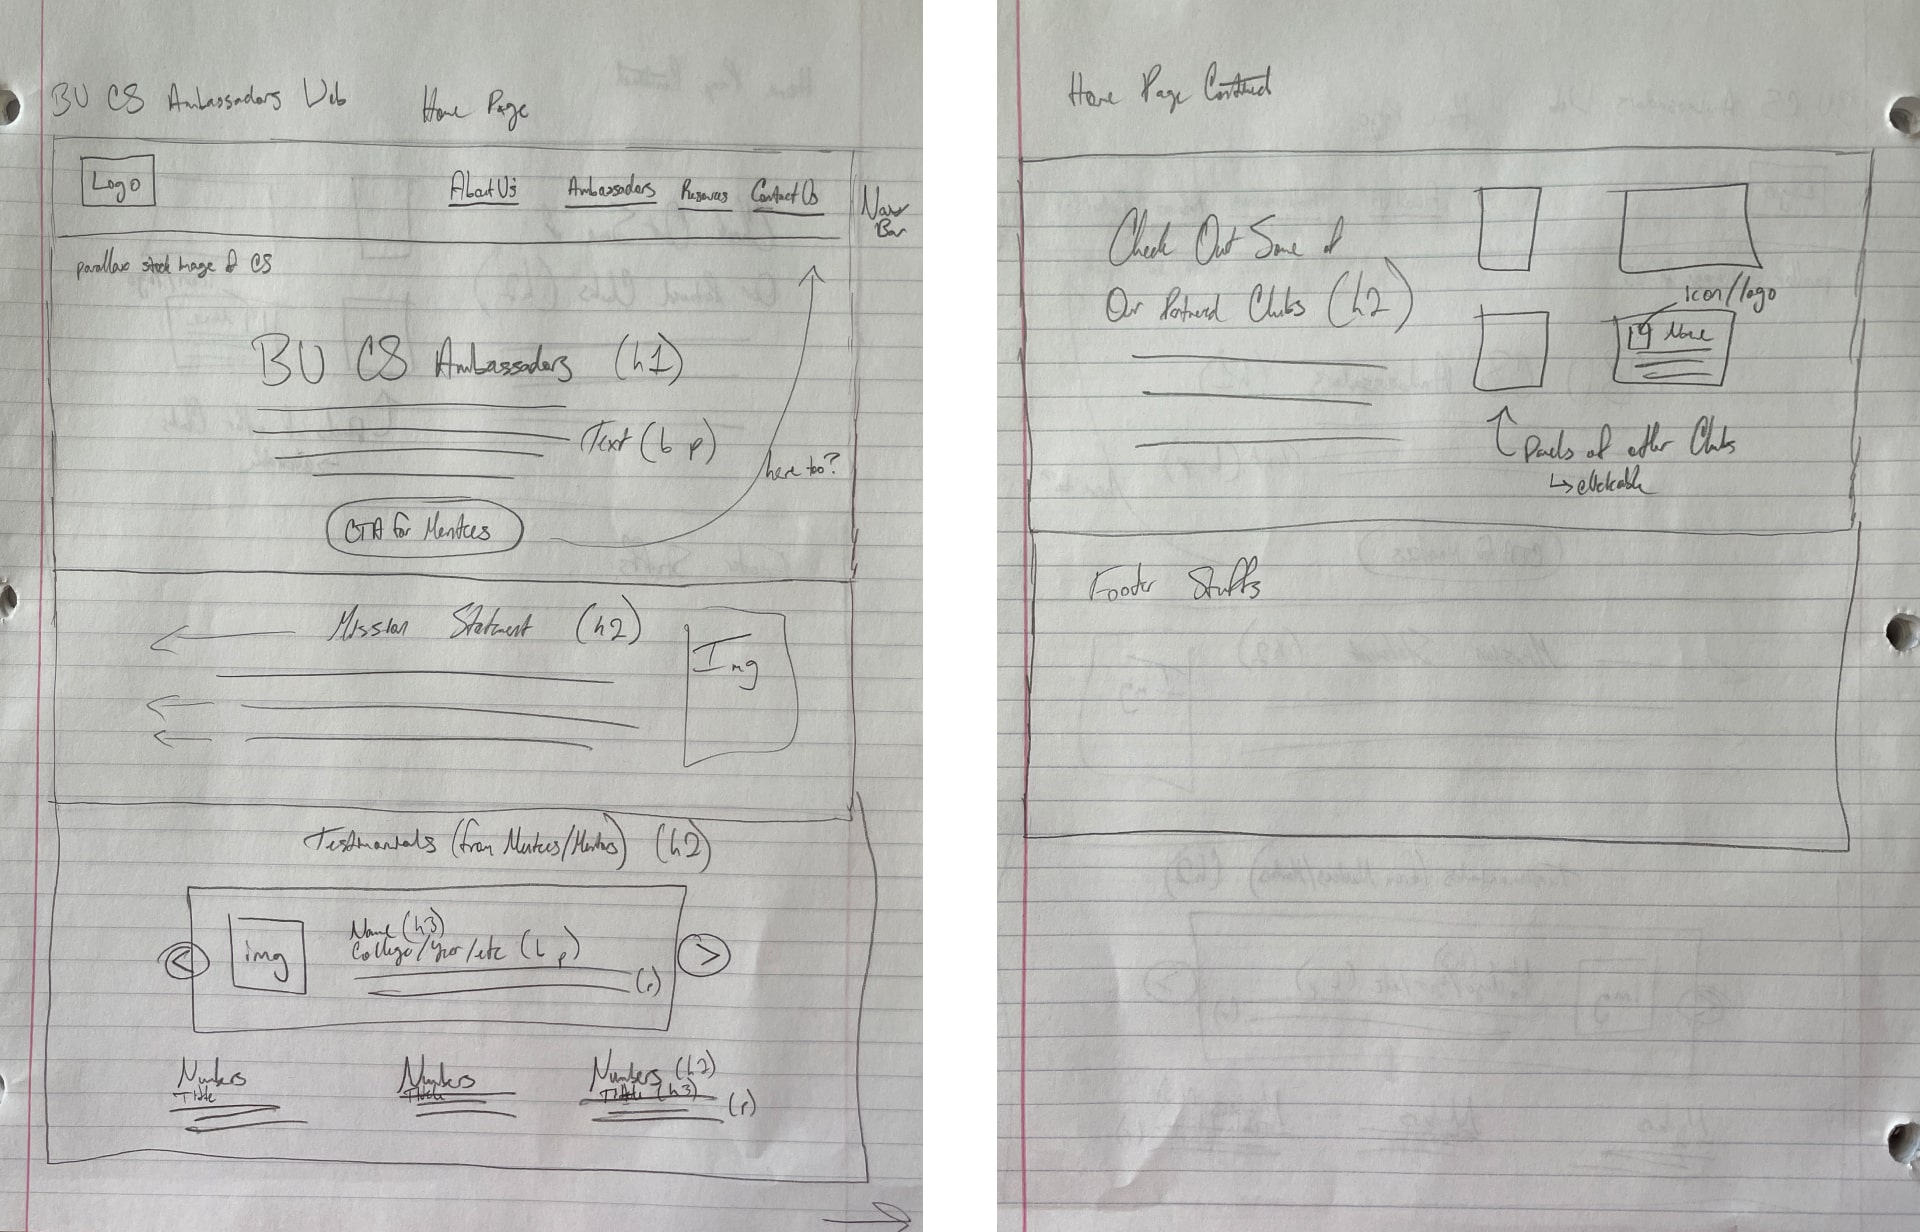 BU CS Ambassadors Web
Home Page
Logo
About Us
Ambassadors
Resources
Contact Us
Nav
Bar
parallax stock image of CS
BU CS Ambassadors (h1)
Text (b p)
here too?
CTA for Mentees
Mission Statement (h2)
Img
Testimonials (from Mentees/Mentors) (h2)
<
img
Name (h3)
College/Year/etc (b p)
(p)
>
Numbers
Title
Numbers
Title
Numbers (h2)
Title (h3)
(p)
Home Page Continued
Check Out Some of
Our Partnered Clubs (h2)
icon/logo
Name
Panels of other Clubs
↳ clickable
Footer Stuffs